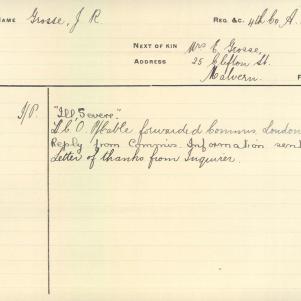 NAME Grosse, J R. REG &C. 4th Co A.
NEXT OF KIN Mrs E Grosse,
ADDRESS 25 Clifton St.
Malvern.
F
"Ill, Severe."
Cable forwarded Commis. London
Reply from Commis. Information sent
Letter of thanks from Inquirer.